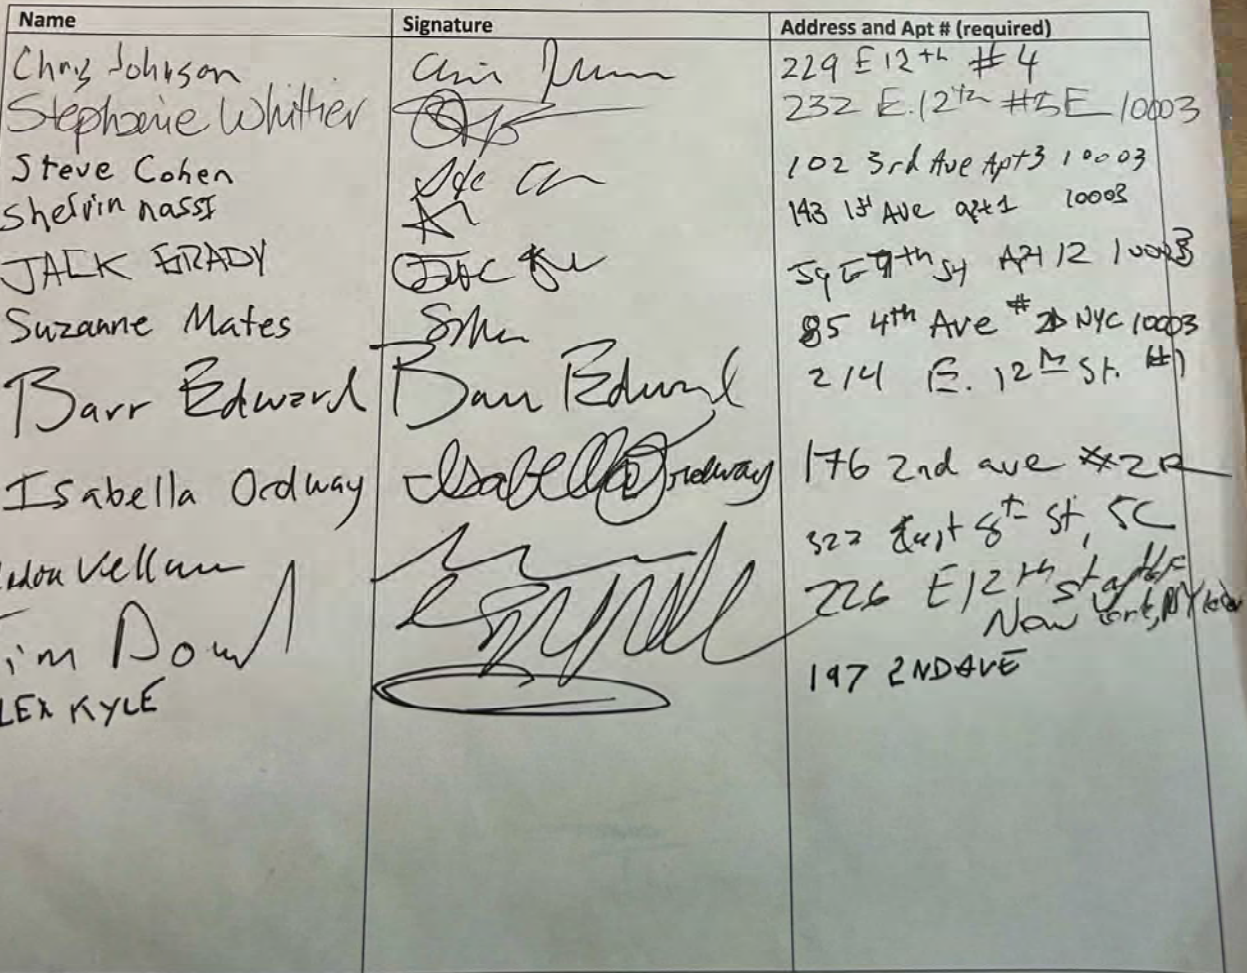 Name Signature Address and Apt # (required)
Chris Johnson 229 E 12th #4
Stephanie Whittier 232 E. 12th #5E 10003
Steve Cohen 102 3rd Ave Apt 3 10003
Shervin nassi 143 1st Ave apt 1 10003
JACK GRADY 59 E 7th St Apt 12 10003
Suzanne Mates 85 4th Ave # NYC 10003
Barr Edward Barr Edward 214 E. 12th St. #1
Isabella Ordway Isabella Ordway 176 2nd ave #2R
322 East 8th St, 5C
im Dowd 226 E 12th st New York, NY
LEX KYLE 197 2ND AVE